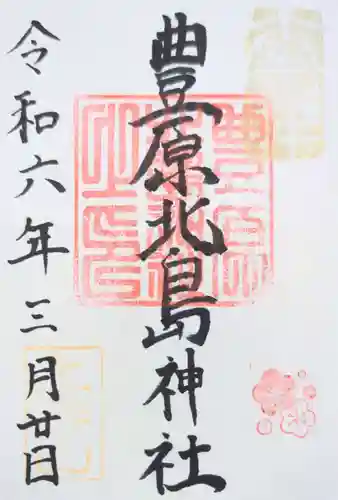 豊原北島神社
令和六年三月廿日